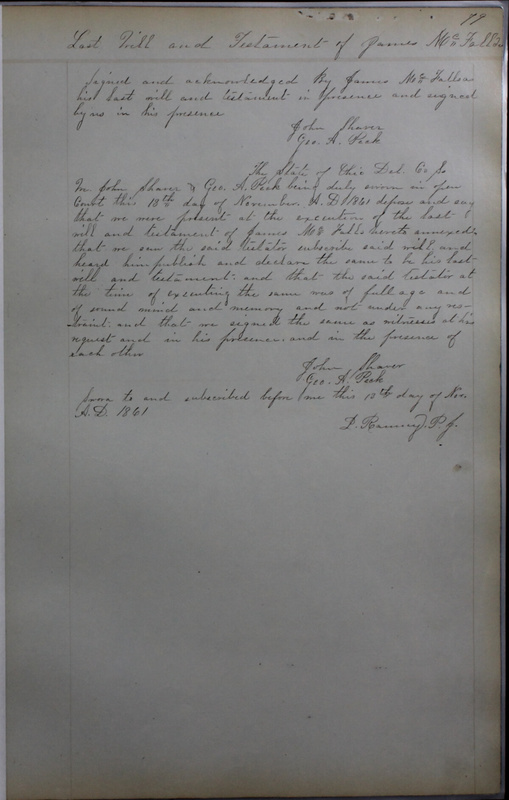 99
Last Will and Testament of James Mc Falls
Signed and acknowledged By James Mc Falls a
his last will and testament in presence and signed
by us in his presence
John Shaver
Geo. A. Peck
The State of Ohio Del. Co Ss
We John Shaver & Geo. A. Peck being duly sworn in open
Court this 18th day of November A.D 1861 depose and say
that we were present at the execution of the last
will and testament of James Mc Falls hereto annexed
that we saw the said testator subscribe said will and
heard him publish and declare the same to be his last
will and testament: and that the said testator at
the time of executing the same was of full age and
of sound mind and memory and not under any res-
traint: and that we signed the same as witnesses at his
request and in his presence, and in the presence of
each other
John Shaver
Geo. A. Peck
Sworn to and subscribed before me this 18th day of Nov.
A.D. 1861
P. J.